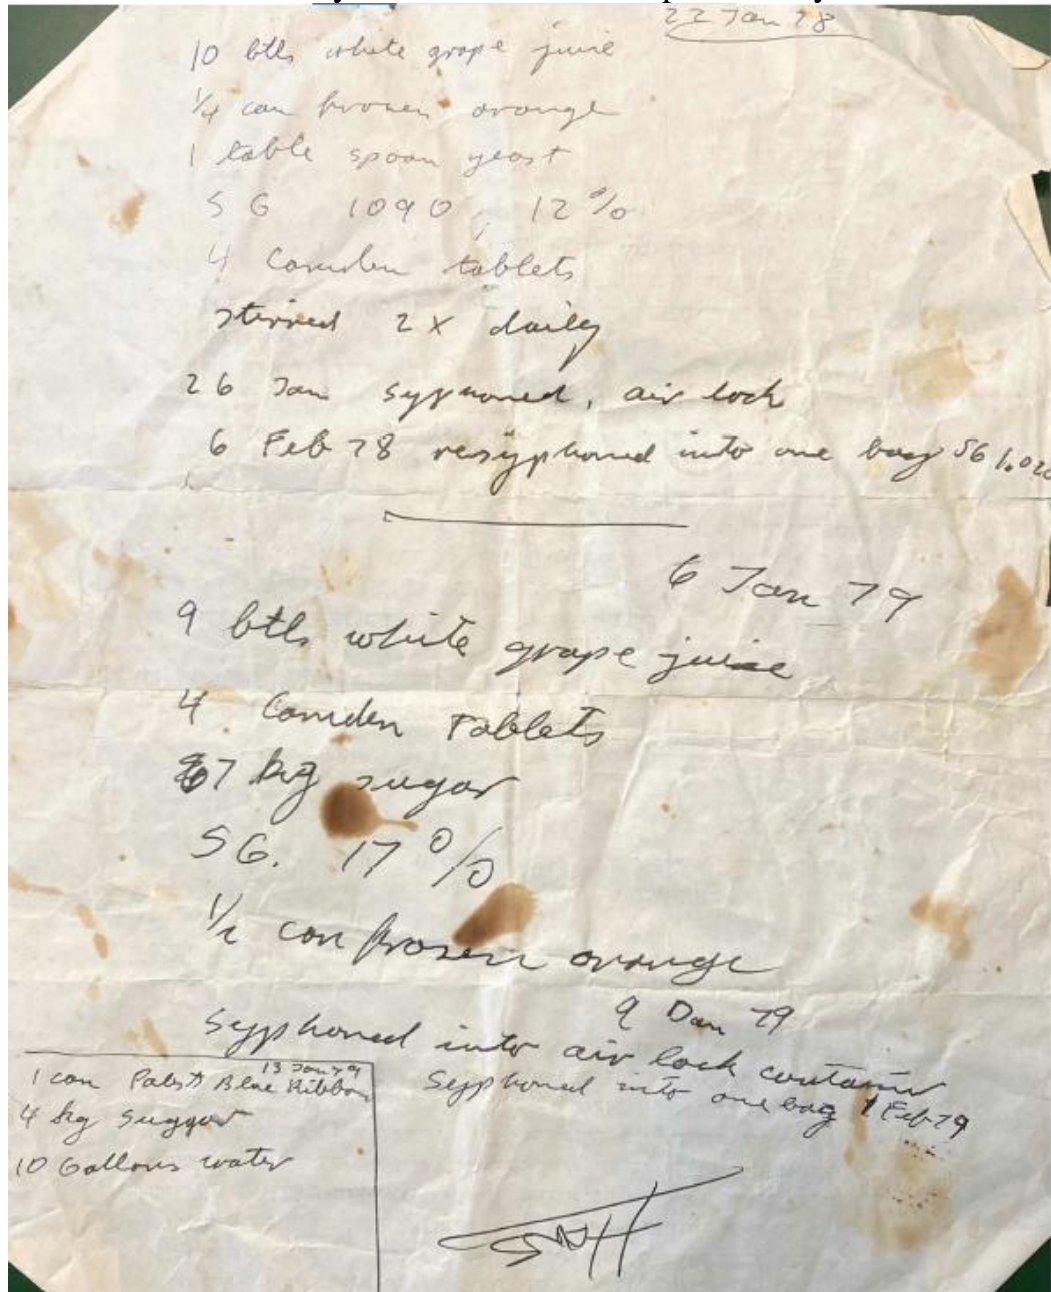 22 Jan 78
10 btls white grape juice
1/4 can frozen orange
1 table spoon yeast
SG 1090, 12%
4 Camden tablets
stirred 2X daily
26 Jan syphoned, air lock
6 Feb 78 resyphoned into one bag SG 1.020
6 Jan 79
9 btls white grape juice
4 Camden Tablets
7 kg sugar
SG. 17%
1/2 can frozen orange
9 Jan 79
Syphoned into air lock container
Syphoned into one bag 1 Feb 79
13 Jan 79
1 can Pabst Blue Ribbon
4 kg Suggar
10 Gallons water